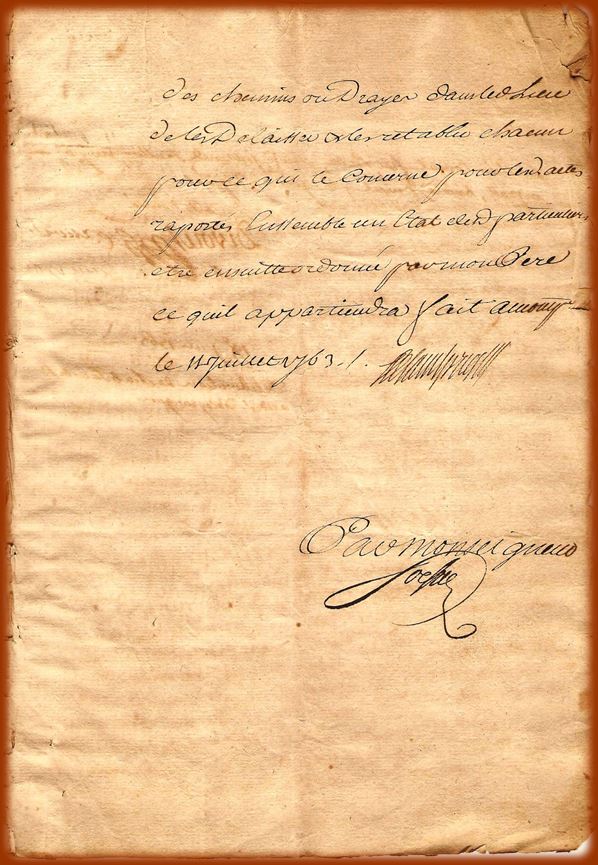 des chemins ou Drayes dans led Lieu
de les Delaisser & les retablir chacun
pour ce qui le Concerne pour lesd actes
raportés Ensemble un Etat desd particuliers
etre ensuitte ordonné par mon Pere
ce quil appartiendra fait a
le 11 Juillet 1763 ./.
Par monseigneur